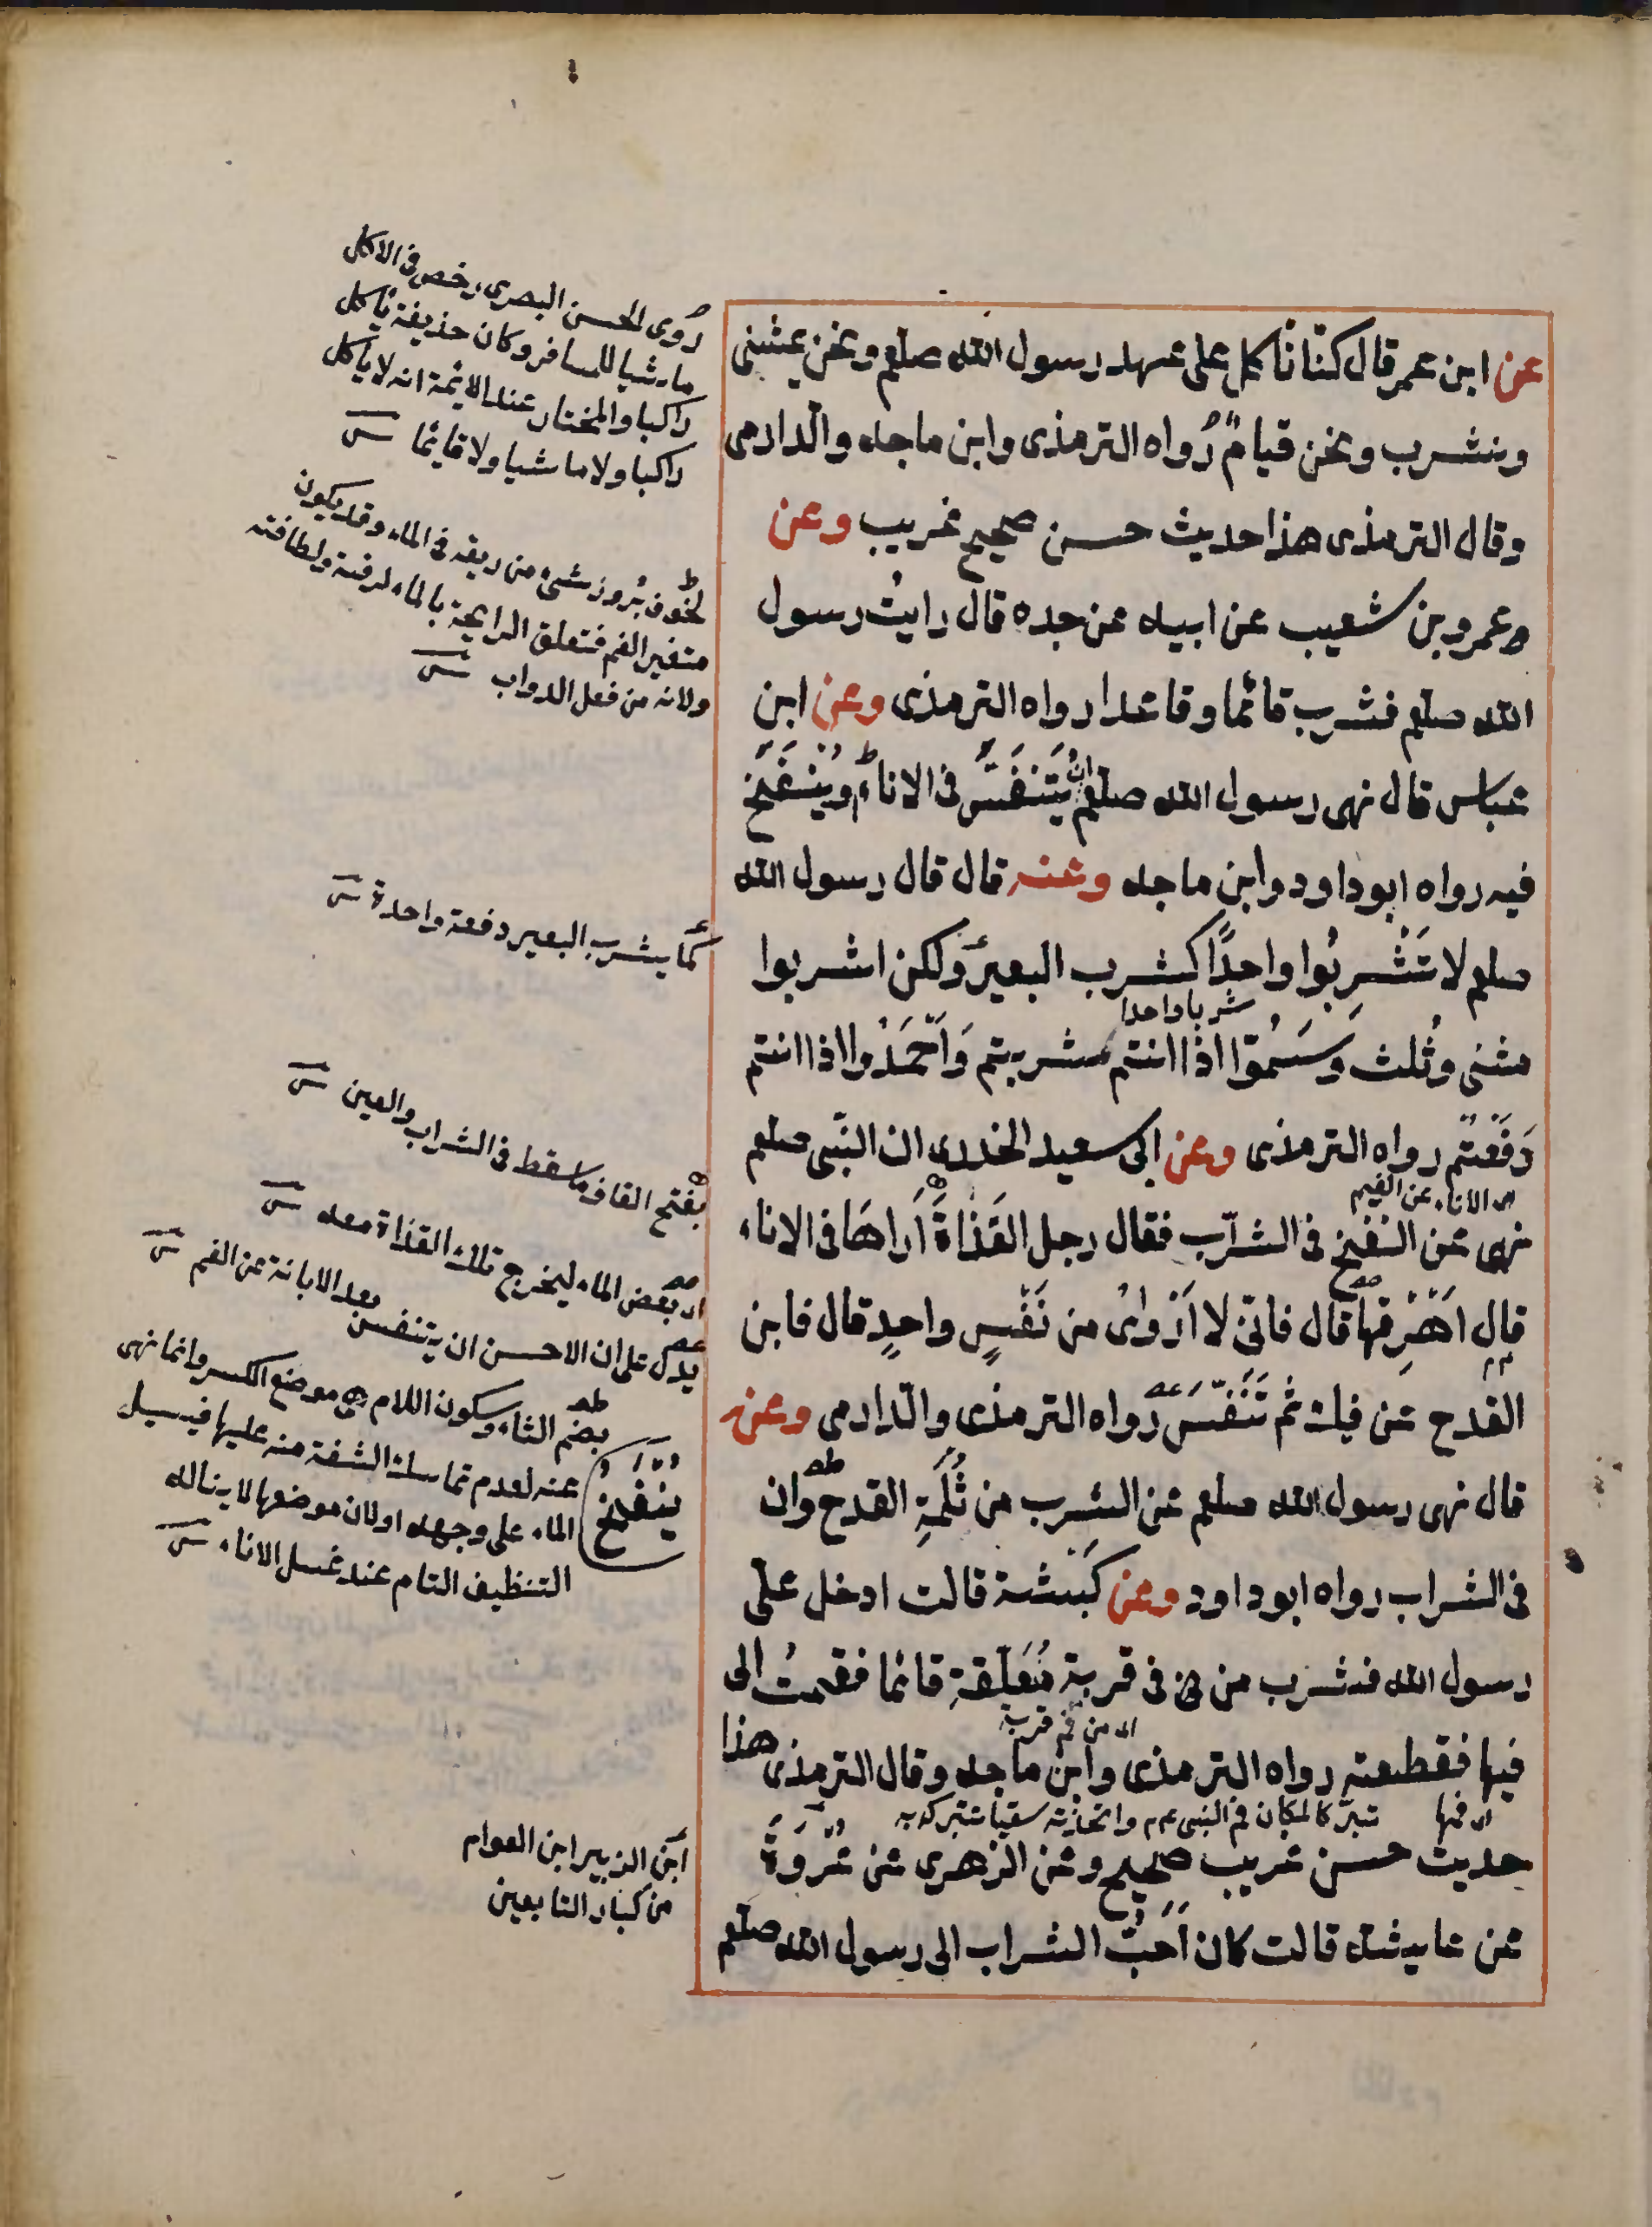 عن ابن عمر قال كنا ناكل على عهد رسول الله صلعم ونحن نمشى
ونشرب ونحن قيام رواه الترمذى وابن ماجه والدارمى
وقال الترمذى هذا حديث حسن صحيح غريب وعن
عمرو بن شعيب عن ابيه عن جده قال رايت رسول
الله صلعم فشرب قائما وقاعدا رواه الترمذى وعن ابن
عباس قال نهى رسول الله صلعم ان يُتَنَفَّسَ فى الاناء او يُنْفَخَ
فيه رواه ابو داود وابن ماجه وعنه قال قال رسول الله
صلعم لا تَشْرِبُوا واحدًا كشرب البعير ولكن اشربوا
شربا واحدا
مثنى وثلث وسَمُّوا اذا انتم شربتم وَاَحْمَدُوا اذا انتم
رَفَعْتم رواه الترمذى وعن ابى سعيد الخدرى ان النبى صلعم
اى الاناء عن الفم
نهى عن النفخ فى الشراب فقال رجل القَذَاةَ اَرَاهَا فى الاناء
قال اَهْرِقها قال فانى لا اَرْوٰى من نَفَسٍ واحدٍ قال فابن
القدح عن فيك ثم تَنَفَّسَ رواه الترمذى والدارمى وعنه
قال نهى رسول الله صلعم عن الشرب من ثُلْمَةِ القدح وان
فى الشراب رواه ابو داود وعن كَبْشة قالت ادخل على
رسول الله فشرب من فى فى قربة مُعَلَّقةٍ قائما فقمتُ الى
اى من فم قربة
فيها فقطعته رواه الترمذى وابن ماجه وقال الترمذى هذا
اى فمها تبركا لمكان فم النبى عم واتخاذته سقيا تتبرك به
حديث حسن غريب صحيح وعن الزهرى عن عُرْوَةَ
عن عايشه قالت كان اَحَبُّ الشراب الى رسول الله صلعم
روى الحسن البصرى رخص فى الاكل
ماشيا للمسافر وكان حذيفة ياكل
راكبا والمختار عند الائمة انه لا ياكل
راكبا ولا ماشيا ولا قائما
لخوف بروز شىء من ريقه فى الماء وقد يكون
متغير الفم فتعلق الرايحة بالماء لرقته ولطافته
ولانه من فعل الدواب
كما يشرب البعير دفعة واحدة
بفتح القاف ما سقط فى الشراب والعين
اى بعض الماء ليخرج تلك القذاة معه
يدل على ان الاحسن ان يتنفس بعد الابانة عن الفم
بضم الثاء وسكون اللام هى موضع الكسر وانما نهى
عنه لعدم تماسك الشفة منه عليها فيسيل
يُنْفَخَ
الماء على وجهه او لان موضعها لا يناله
التنظيف التام عند غسل الاناء
ابن الزبير ابن العوام
من كبار التابعين